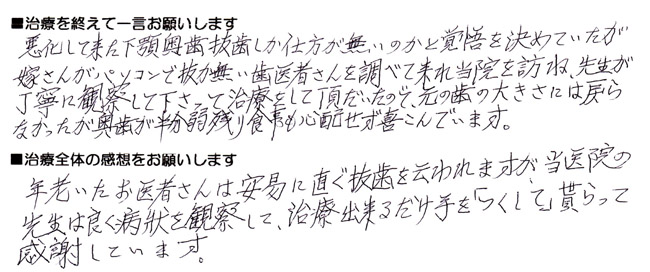 ■治療を終えて一言お願いします
悪化して来た下顎奥歯抜歯しか仕方が無いのかと覚悟を決めていたが
嫁さんがパソコンで抜か無い歯医者さんを調べて来れ当院を訪ね、先生が
丁寧に観察して下さって治療をして頂だいたので、元の歯の大きさには戻ら
なかったが奥歯が半分弱残り食事も心配せず喜こんでいます。
■治療全体の感想をお願いします
年老いたお医者さんは安易に直ぐ抜歯を云われますが、当医院の
先生は良く病状を観察して、治療出来るだけ手を「つくして」貰らって
感謝しています。